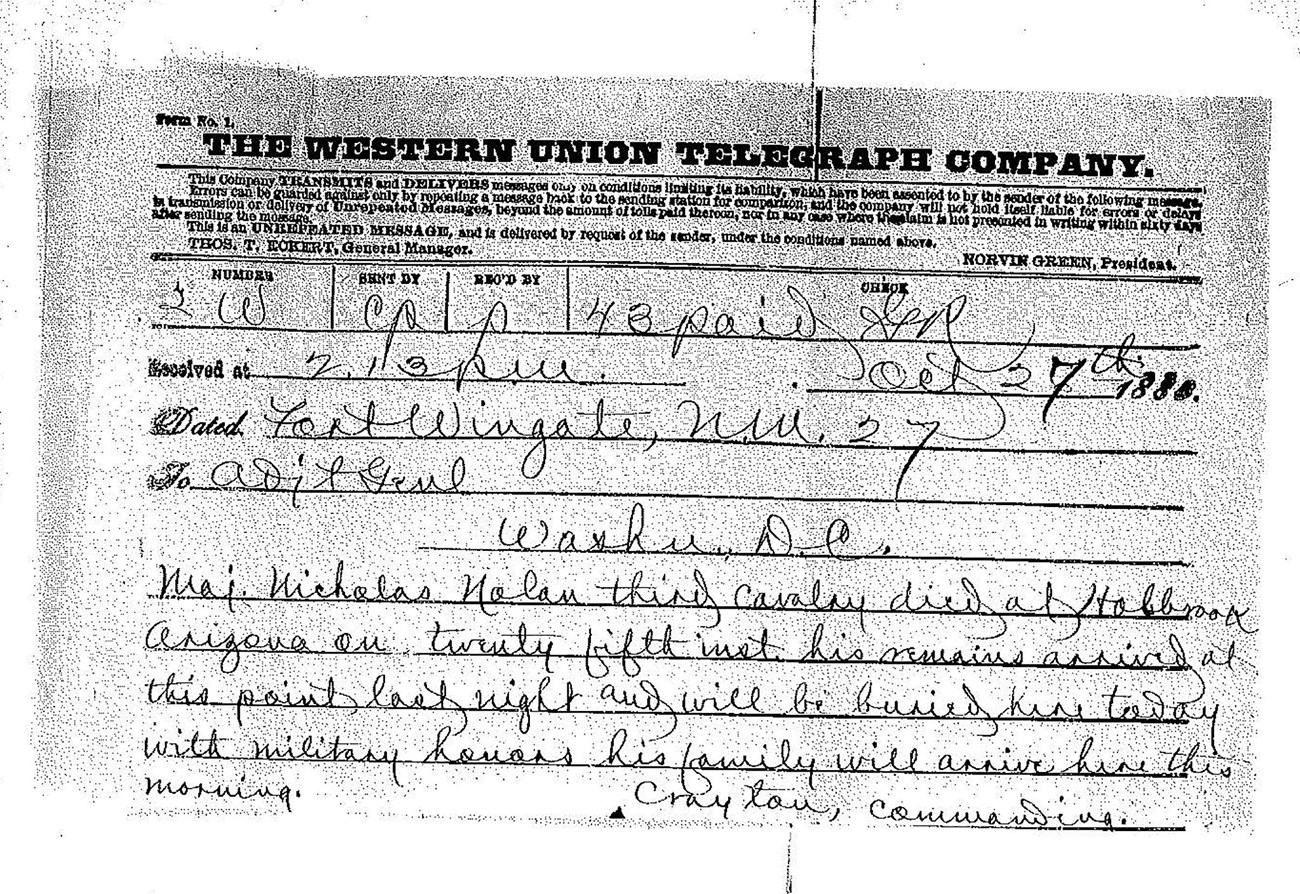 Form No. 1.
THE WESTERN UNION TELEGRAPH COMPANY.
This Company TRANSMITS and DELIVERS messages only on conditions limiting its liability, which have been assented to by the sender of the following message.
Errors can be guarded against only by repeating a message back to the sending station for comparison, and the company will not hold itself liable for errors or delays
in transmission or delivery of Unrepeated Messages, beyond the amount of tolls paid thereon, nor in any case where the claim is not presented in writing within sixty days
after sending the message.
This is an UNREPEATED MESSAGE, and is delivered by request of the sender, under the conditions named above.
THOS. T. ECKERT, General Manager.
NORVIN GREEN, President.
NUMBER SENT BY REC'D BY CHECK
W CP P 43 paid
Received at 2.13 pm. Oct 27th 188
Dated Fort Wingate, N.M. 27
To Adjt Genl
Washn, D.C.
Maj. Nicholas Nolan third cavalry died at Holbrook
Arizona on twenty fifth inst. his remains arrived at
this point last night and will be buried here today
with military honors his family will arrive here this
morning. Crayton, commanding.